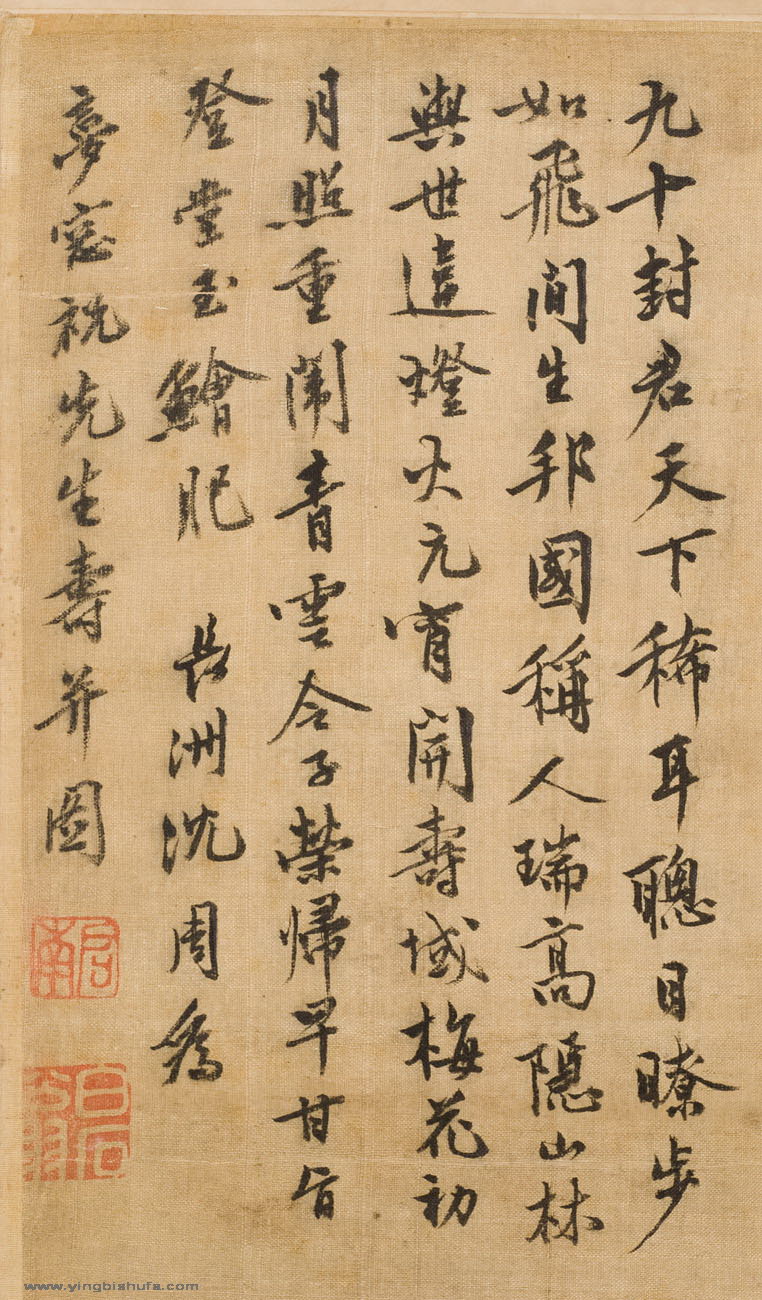 九十封君天下稀耳聰目瞭步
如飛間生邦國稱人瑞高隱山林
與世違燈火元宵開壽域梅花初
月照重闈青雲令子榮歸早甘旨
登堂玉鱠肥　長洲沈周為
夢窓祝先生壽并圖
啟南
白石
www.yingbishufa.com